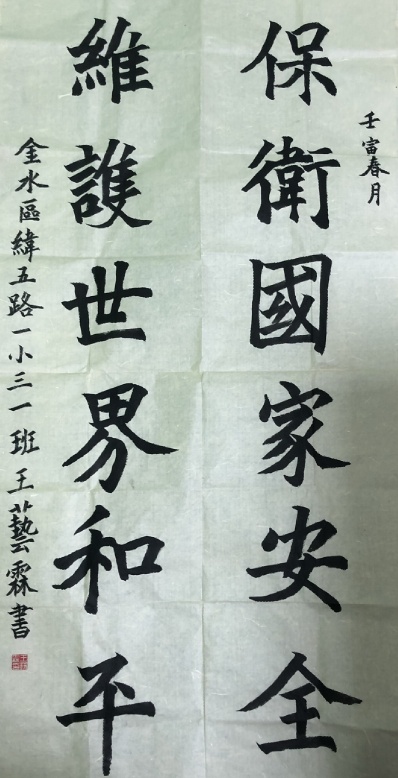 壬寅春月
保衛國家安全
維護世界和平
金水區緯五路一小三一班王藝霖書